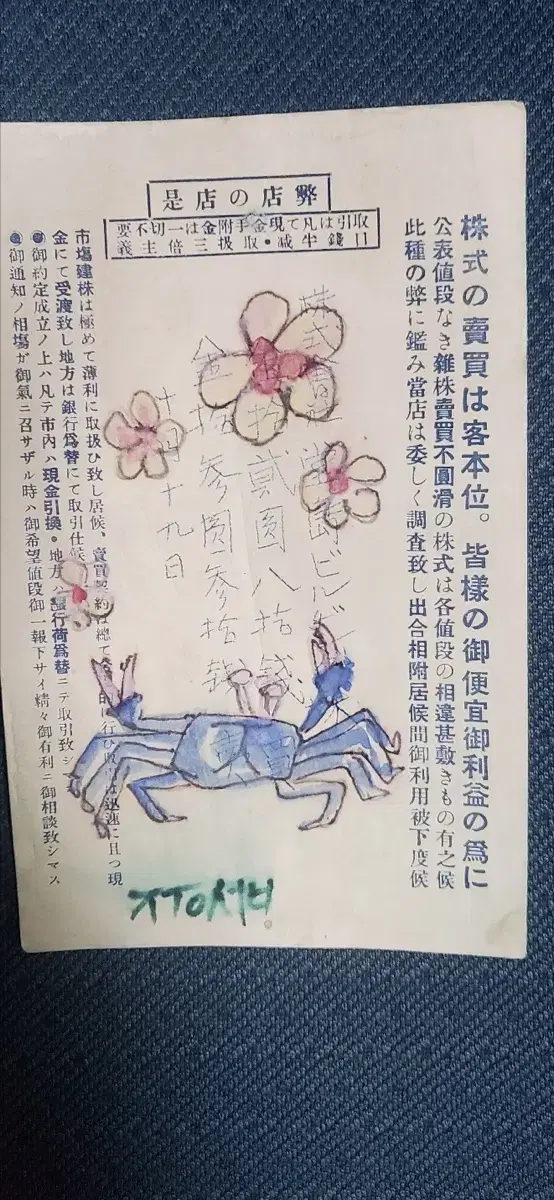 株式の賣買は客本位。皆樣の御便宜御利益の爲に
公表値段なき雜株賣買不圓滑の株式は各値段の相違甚敷きもの有之候
此種の弊に鑑み當店は委しく調査致し出合相附居候間御利用被下度候
是店の店弊
要不切一は金附手金現て凡は引取
義主倍三扱取・减半錢口
株式會社堂島ビルヂ
拾貳圓八拾錢
金拾參圓參拾錢
十九日
賣
買
市塲建株は極めて薄利に取扱ひ致し居候、賣買契約は總て に行ひ 迅速に且つ現
金にて受渡致し地方は銀行爲替にて取引仕候
御約定成立ノ上ハ凡テ市内ハ現金引換・地方ハ銀行荷爲替ニテ取引致シマ
御通知ノ相塲ガ御氣ニ召サザル時ハ御希望値段御一報下サイ精々御有利ニ御相談致シマス